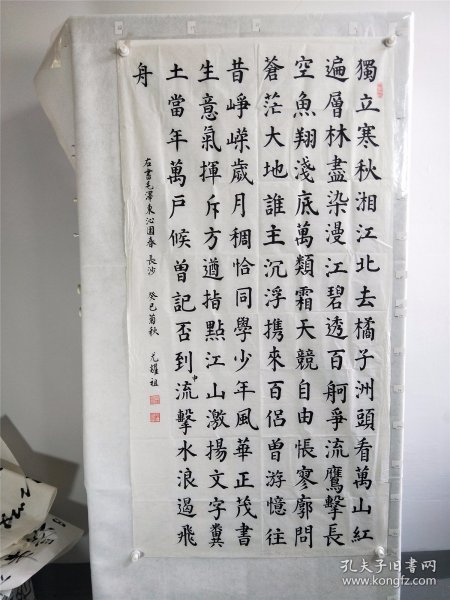 獨立寒秋湘江北去橘子洲頭看萬山紅
遍層林盡染漫江碧透百舸爭流鷹擊長
空魚翔淺底萬類霜天競自由悵寥廓問
蒼茫大地誰主沉浮携來百侶曾游憶往
昔崢嶸歲月稠恰同學少年風華正茂書
生意氣揮斥方遒指點江山激揚文字糞
土當年萬戶候曾記否到中流擊水浪遏飛
舟
右書毛澤東沁园春 長沙 癸巳菊秋 耀祖
孔夫子旧书网
www.kongfz.com